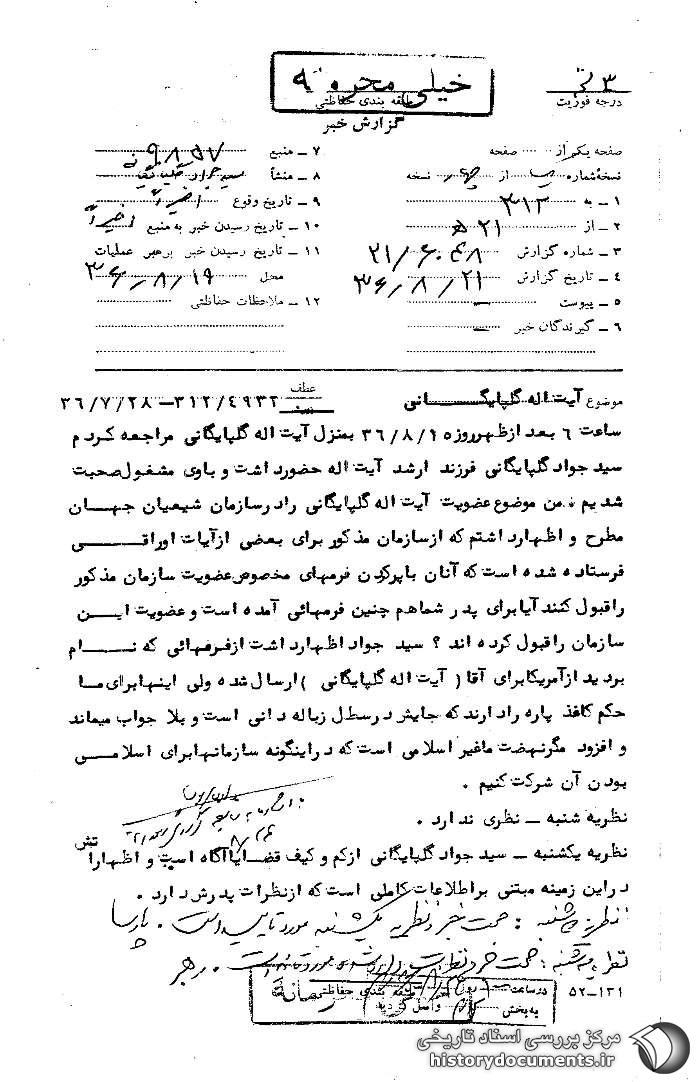 خیلی محرمانه
طبقه بندی حفاظتی
درجه فوریت
گزارش خبر
صفحه یکم از ...... صفحه
نسخه شماره ...... از ...... نسخه
۱ ـ به ۳۱۲
۲ ـ از ۲۱ ه‍
۳ ـ شماره گزارش ۲۱/۶۰۴۸
۴ ـ تاریخ گزارش ۳۶/۸/۲۱
۵ ـ پیوست ــ
۶ ـ گیرندگان خبر ــ
۷ ـ منبع ۹۸۵۷
۸ ـ منشأ سید جواد گلپایگانی
۹ ـ تاریخ وقوع اخیراً
۱۰ ـ تاریخ رسیدن خبر به منبع اخیراً
۱۱ ـ تاریخ رسیدن خبر برهبر عملیات
محل ۳۶/۸/۱۹
۱۲ ـ ملاحظات حفاظتی
موضوع آیت اله گلپایگانی
عطف ۳۱۲/۴۹۳۲ ـ ۳۶/۷/۲۸
ساعت ۶ بعد ازظهر روزه ۳۶/۸/۱۰ بمنزل آیت اله گلپایگانی مراجعه کردم
سید جواد گلپایگانی فرزند ارشد آیت اله حضور داشت و باوی مشغول صحبت
شدیم ، من موضوع عضویت آیت اله گلپایگانی را در سازمان شیعیان جهان
مطرح و اظهار داشتم که از سازمان مذکور برای بعضی از آیات اوراقی
فرستاده شده است که آنان با پرکردن فرمهای مخصوص عضویت سازمان مذکور
را قبول کنند آیا برای پدر شما هم چنین فرمهائی آمده است و عضویت این
سازمان را قبول کرده اند ؟ سید جواد اظهار داشت از فرمهائی که نام
بردید از آمریکا برای آقا ( آیت اله گلپایگانی ) ارسال شده ولی اینها برای ما
حکم کاغذ پاره را دارند که جایش در سطل زباله دانی است و بلا جواب میماند
و افزود مگر نهضت ما غیر اسلامی است که در اینگونه سازمانها برای اسلامی
بودن آن شرکت کنیم .
نظریه شنبه ـ نظری ندارد .
نظریه یکشنبه ـ سید جواد گلپایگانی از کم و کیف قضایا آگاه است و اظهارا تش
در این زمینه مبتنی بر اطلاعات کاملی است که از نظرات پدرش دارد .
نظریه دوشنبه : صحت خبر و نظریه یکشنبه مورد تایید است . پارسا
نظریه سه شنبه : صحت خبر و نظریه ... است . رهبر
۵۲-۱۳۱
در ساعت
به بخش
واصل گردید
طبقه بندی حفاظتی
مرکز بررسی اسناد تاریخی
historydocuments.ir